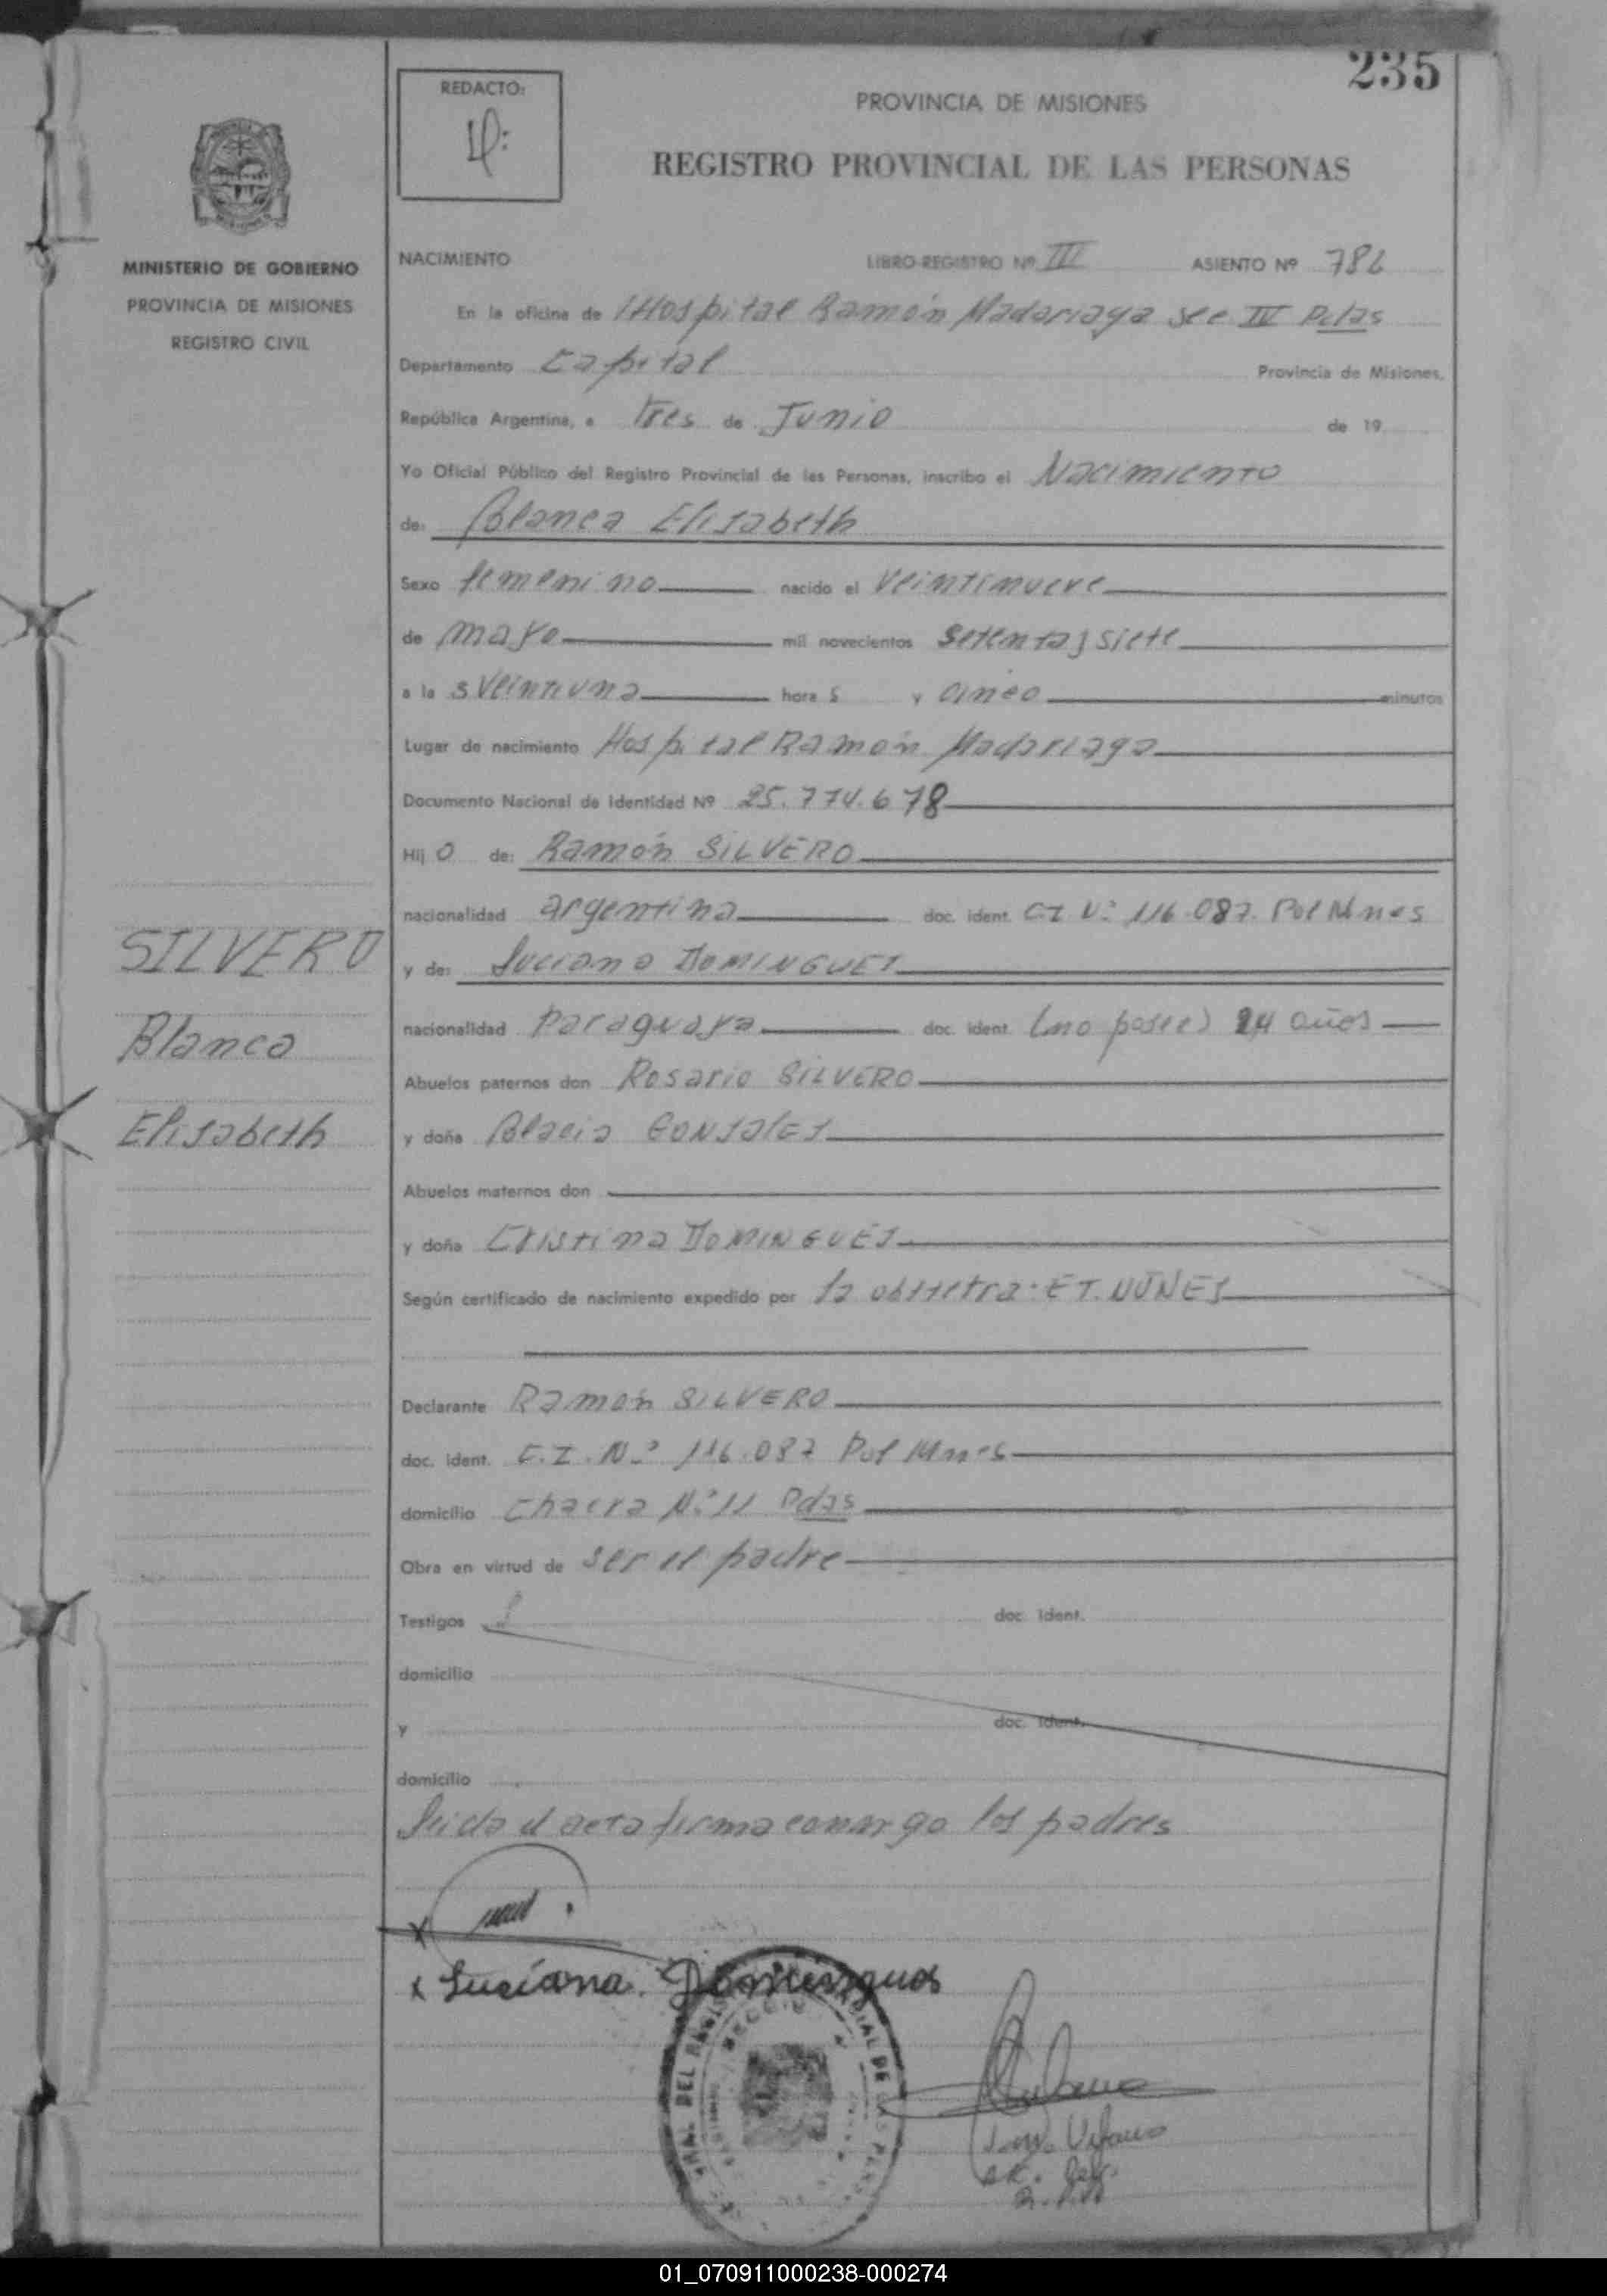 235
REDACTO:
PROVINCIA DE MISIONES
REGISTRO PROVINCIAL DE LAS PERSONAS
MINISTERIO DE GOBIERNO
PROVINCIA DE MISIONES
REGISTRO CIVIL
NACIMIENTO LIBRO-REGISTRO Nº III ASIENTO Nº 786
En la oficina de Hospital Ramón Madariaga sec IV Pdas
Departamento Capital Provincia de Misiones,
República Argentina, a Tres de Junio de 19
Yo Oficial Público del Registro Provincial de las Personas, inscribo el Nacimiento
de: Blanca Elisabeth
Sexo femenino nacido el veintinueve
de mayo mil novecientos setenta y siete
a la s veintiuna hora s y cinco minutos
Lugar de nacimiento Hospital Ramón Madariaga
Documento Nacional de Identidad Nº 25.774.678
Hij o de: Ramón SILVERO
nacionalidad argentina doc. ident. CI Nº 116.087. Pol Mnes
SILVERO
Blanca
Elisabeth
y de: Luciana DOMINGUES
nacionalidad paraguaya doc. ident. (no posee) 24 años
Abuelos paternos don Rosario SILVERO
y doña GONSALES
Abuelos maternos don
y doña Cristina DOMINGUES
Según certificado de nacimiento expedido por la obstetra: E T. NUÑES
Declarante Ramón SILVERO
doc. ident. C.I. Nº 116.087 Pol Mnes
domicilio Chacra Nº 11 Pdas
Obra en virtud de ser el padre
Testigos doc. ident.
domicilio
y doc. ident.
domicilio
Leida el acta firma conmigo los padres
x
x Luciana. Domingues
01_070911000238-000274